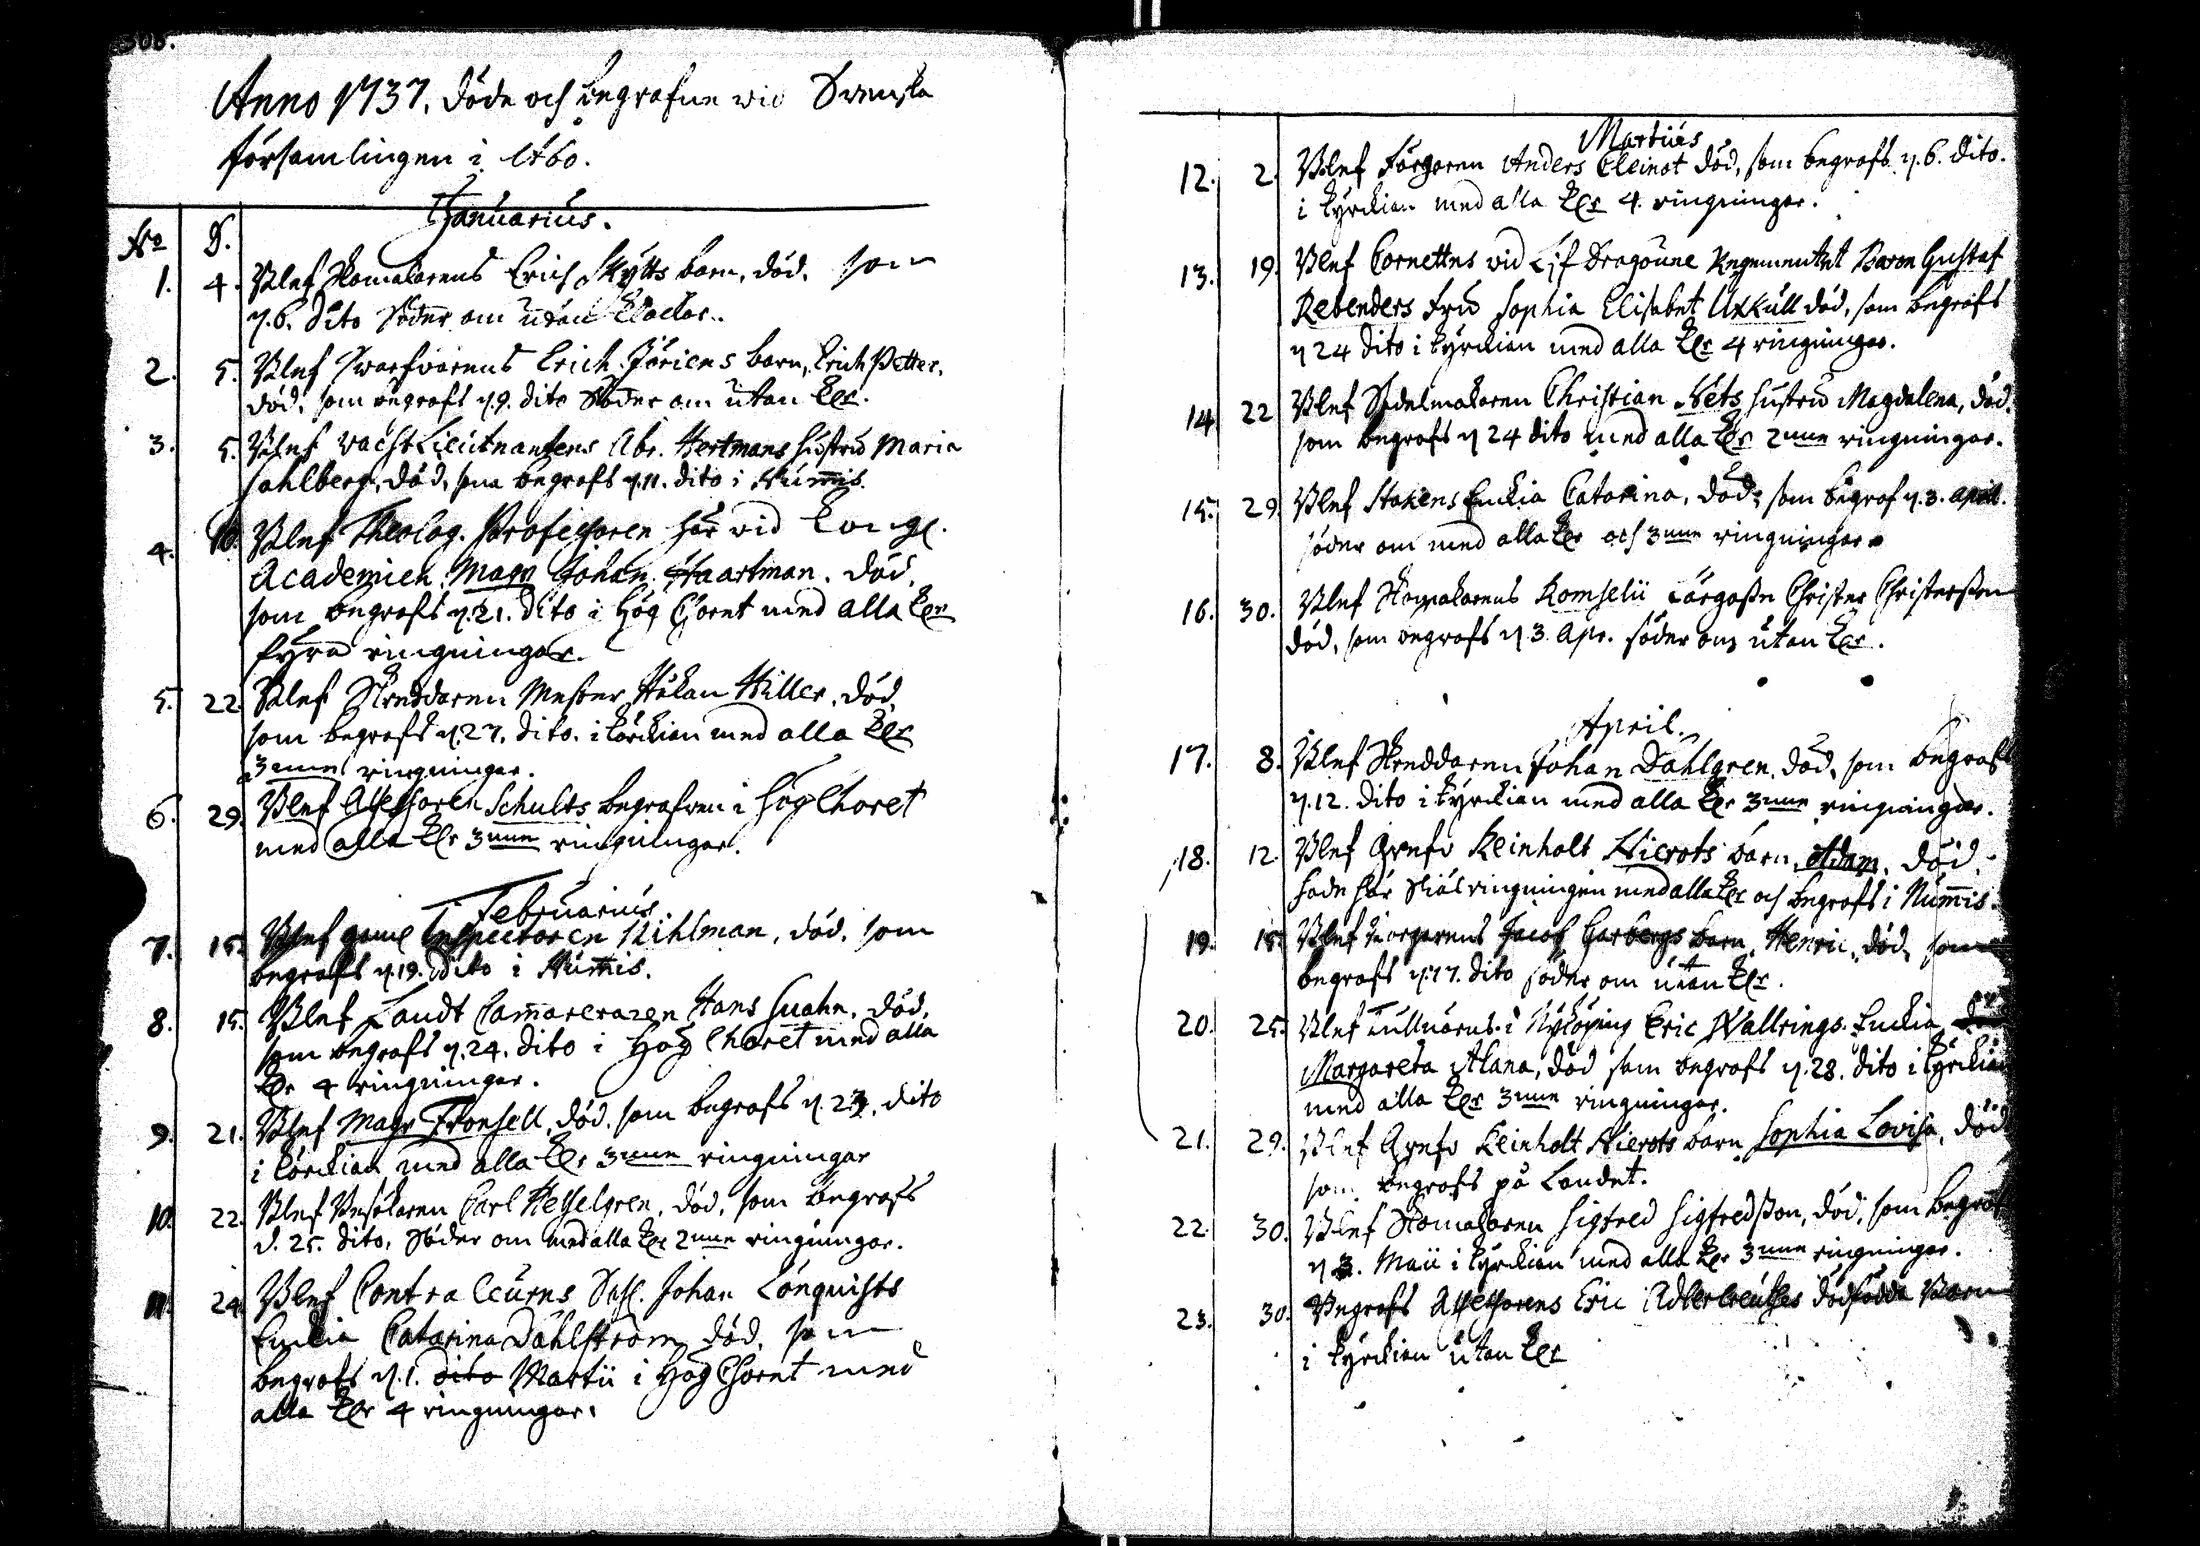 308.
Anno 1737. döde och begrafne wid Svenska
församlingen i Åbo.
Januarius.
No D.
1. 4. Blef Skomakarens Erich Skytts barn, död, som
d. 6. dito Söder om utan klockor.
2. 5. Blef Swarfvarens Erich Jöriens barn, Erich Petter,
död, som begrofs d. 9. dito Söder om utan klr.
3. 5. Blef Vacht Lieutnantens Abr. Hertmans hustru Maria
Sahlberg, död, som begrofs d. 11. dito i Nummis.
4. 10. Blef Theolog. Professoren här wid Kongl.
Academien Magr Johan Haartman, död,
som begrofs d. 21. dito i Hög Choret med alla klr
fyra ringningar.
5. 22. Blef Skreddaren Mester Håkan Hiller, död,
som begrofs d. 27. dito. i körckian med alla klr
3nne ringningar.
6. 29. Blef Assessoren Schults begrafven i Hög Choret
med alla klr 3nne ringningar.
Februarius
7. 15. Blef gaml Inspectoren Kihlman, död, som
begrofs d. 19. dito i Nummis.
8. 15. Blef Landt Cammereraren Hans Suahn, död,
som begrofs d. 24. dito i Hög Choret med alla
klr 4 ringningar.
9. 21. Blef Magr Fronsell, död, som begrofs d. 23. dito
i körckian med alla klr 3nne ringningar
10. 22. Blef Besökaren Carl Hesselgren, död, som begrofs
d. 25. dito, Söder om med alla klr 2nne ringningar.
11. 24. Blef Contralleurns Sahl. Johan Lönquists
Enckia Catarina Dahlström, död, som
begrofs d. 1. dito Martii i Hög Choret med
alla klr 4 ringningar.
Martius
12. 2. Blef Färgaren Anders Cleinot död, som begrofs d. 6. dito.
i kyrckian med alla klr 4 ringningar.
13. 19. Blef Cornettens vid Lif Dragoune Regementet Baron Gustaf
Rebenders Fru Sophia Elisabet Uxkull död, som begrofs
d 24 dito i kyrckian med alla klr 4 ringningar.
14 22 Blef Sadelmakaren Christian Nets hustru Magdalena, död.
som begrofs d 24 dito med alla klr 2nne ringningar.
15. 29. Blef Stakens Enckia Catarina, död, som begrof d. 3. april.
söder om med alla klr och 3nne ringningar
16. 30. Blef Skomakarens Komselii Lärgosse Christer Christersson
död, som begrofs d 3. Apr. söder om utan klr.
April.
17. 8. Blef Skreddaren Johan Dahlgren, död, som begrofs
d. 12. dito i kyrckian med alla klr 3nne ringningar.
18. 12 Blef Grefv Reinholt Nierots barn, Adam, död.
hade här Siäl ringningen med alla klr och begrofs i Nummis.
19. 15. Blef Borgarens Jacob Garbergs barn, Henric, död, som
begrofs d. 17. dito söder om utan klr.
20. 25. Blef Tullnärens i Nyköping Eric Wallrings Enckia
Margareta Alana, död som begrofs d. 28. dito i kyrckian
med alla klr 3nne ringningar.
21. 29. Blef Grefv Reinholt Nierots barn Sophia Lovisa, död
som begrofs på Landet.
22. 30. Blef Skomakaren Sigfred Sigfredsson, död, som begrof
d 3. Maii i kyrckian med alla klr 3nne ringningar.
23. 30. Begrofs Assessorens Eric Adlercreutzes dödfödda Barn
i kyrckian utan klr